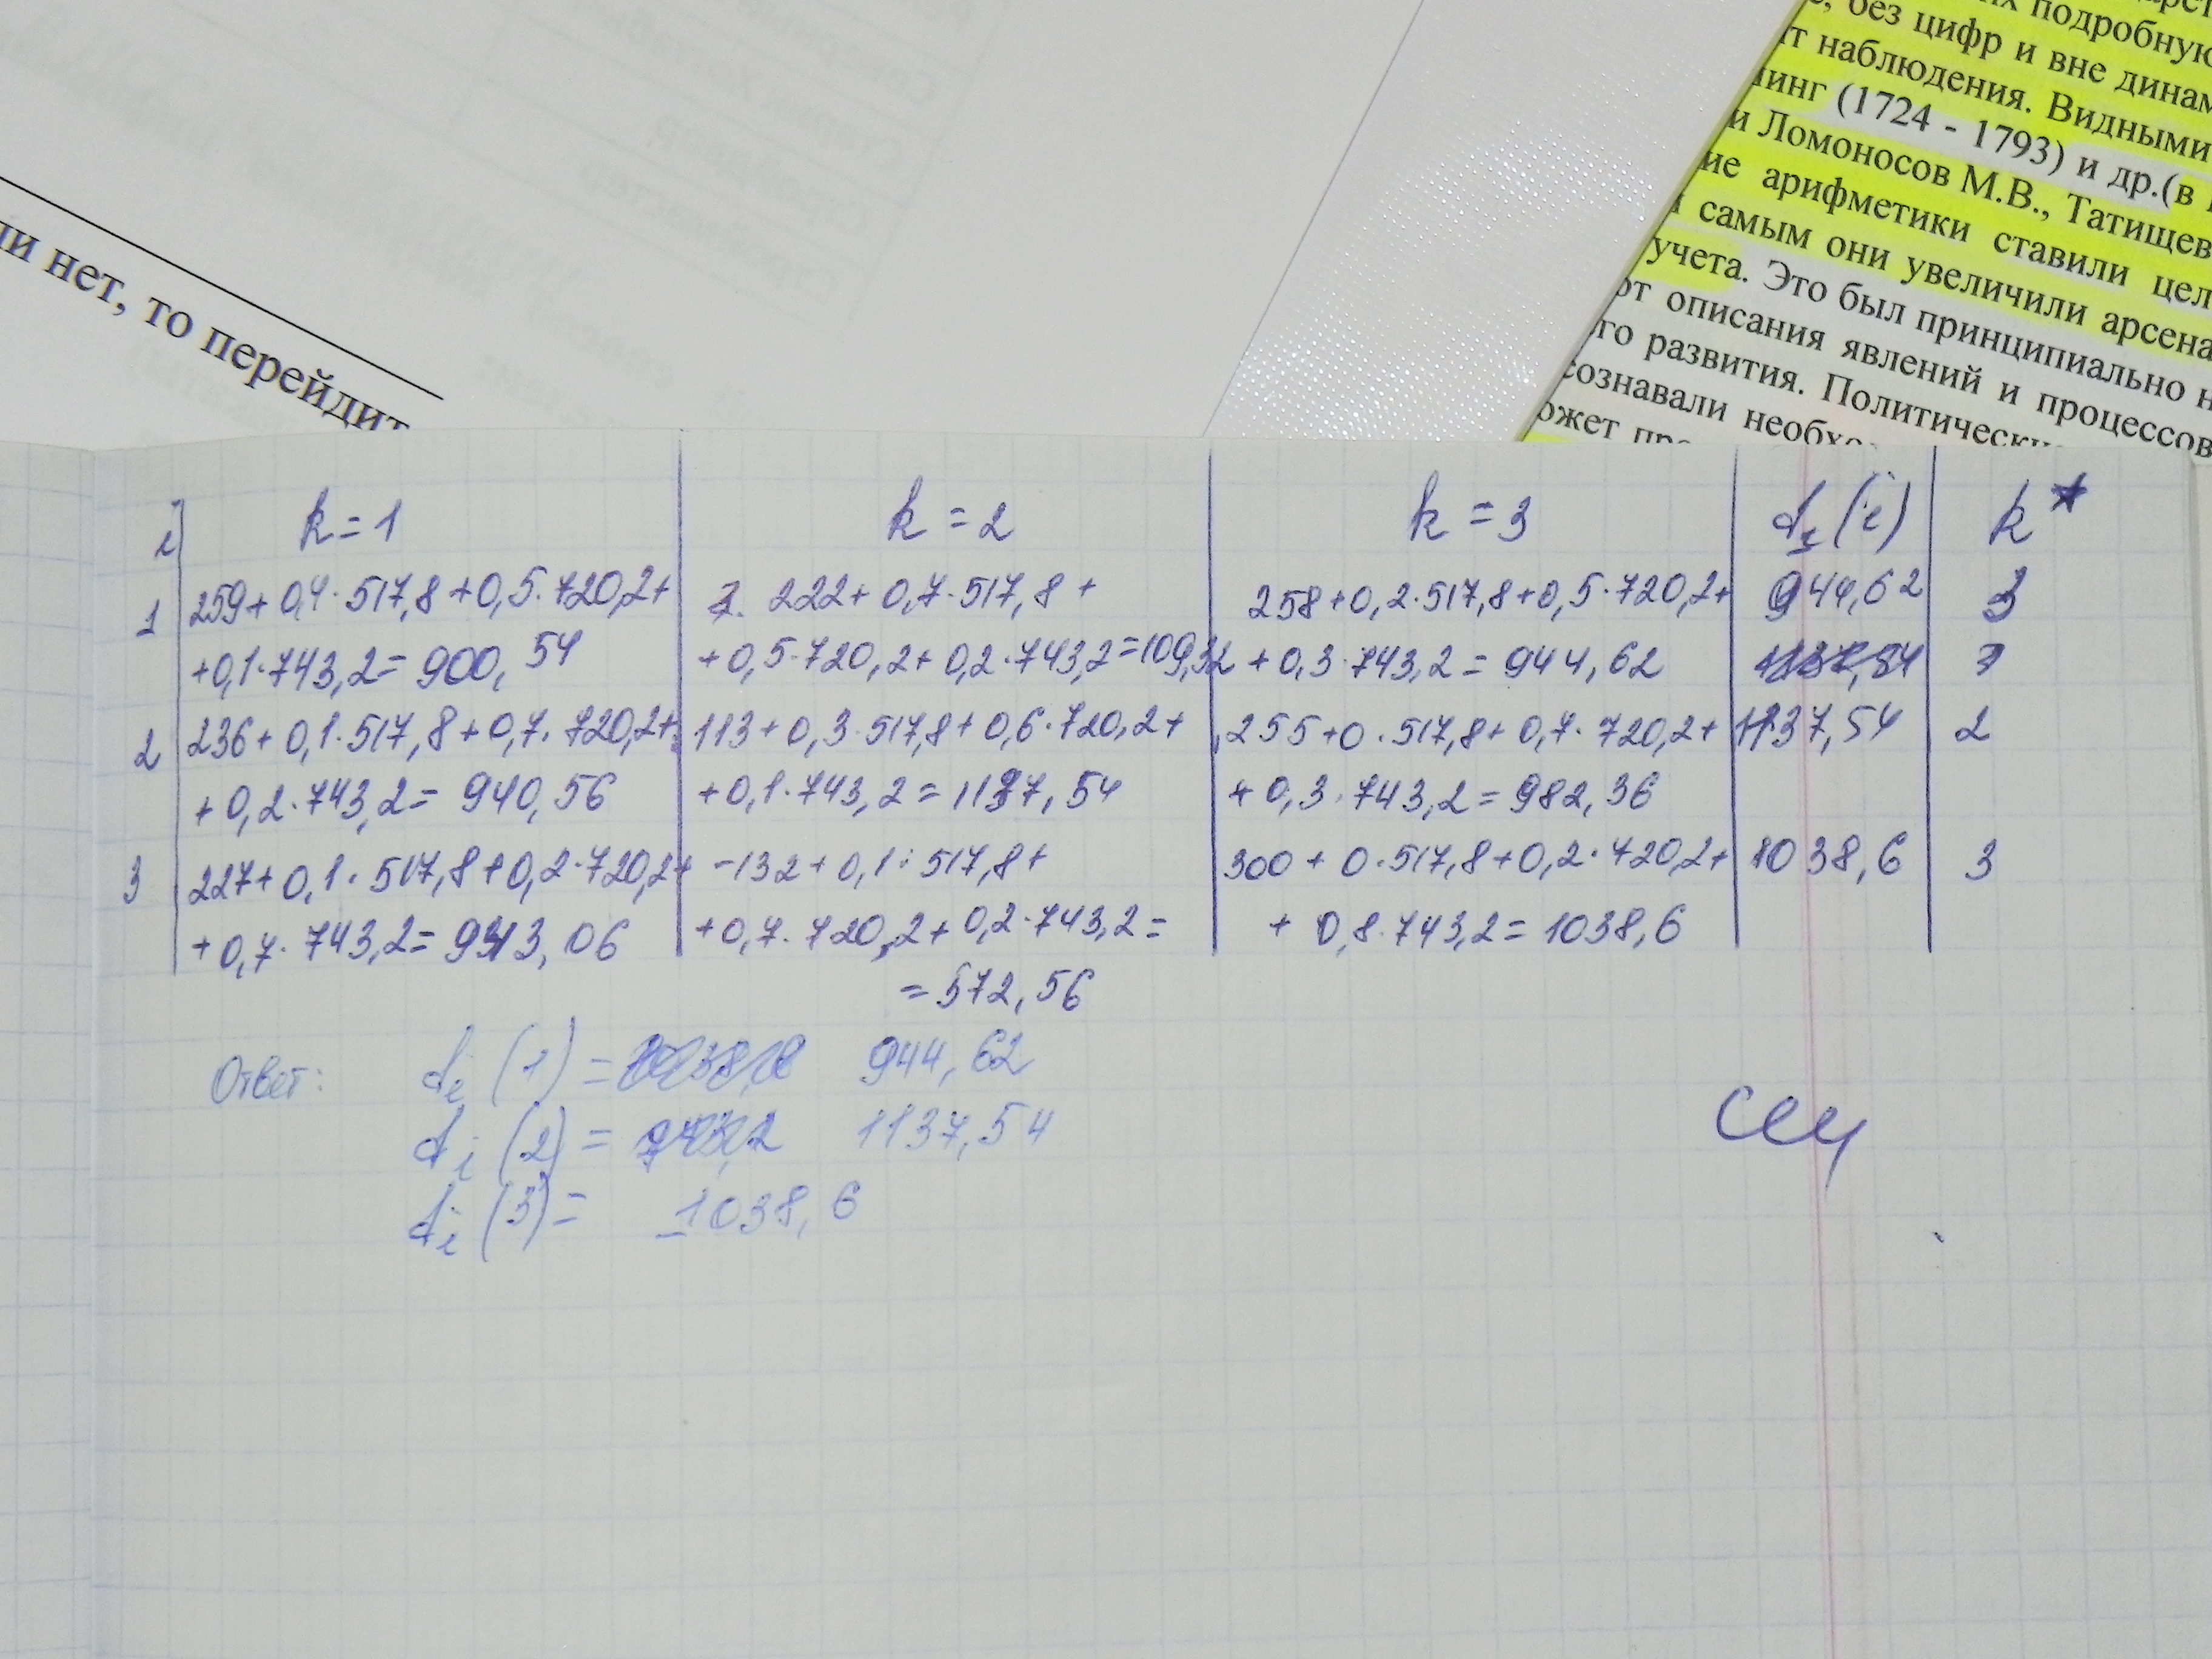 ли нет, то перейдит
подробную
, без цифр и вне динам
т наблюдения. Видными
инг (1724 - 1793) и др.(в
и Ломоносов М.В., Татищев
ие арифметики ставили цел
самым они увеличили арсена
учета. Это был принципиально н
от описания явлений и процессов
го развития. Политически
сознавали необхо
ожет пр
i k = 1 k = 2 k = 3 f₁(i) k*
1 259 + 0,4 · 517,8 + 0,5 · 720,2 + 222 + 0,7 · 517,8 + 258 + 0,2 · 517,8 + 0,5 · 720,2 + 944,62 3
+ 0,1 · 743,2 = 900,54 + 0,5 · 720,2 + 0,2 · 743,2 = 109,32 + 0,3 · 743,2 = 944,62
2 236 + 0,1 · 517,8 + 0,7 · 720,2 + 113 + 0,3 · 517,8 + 0,6 · 720,2 + 255 + 0 · 517,8 + 0,7 · 720,2 + 1137,54 2
+ 0,2 · 743,2 = 940,56 + 0,1 · 743,2 = 1137,54 + 0,3 · 743,2 = 982,36
3 227 + 0,1 · 517,8 + 0,2 · 720,2 + -132 + 0,1 · 517,8 + 300 + 0 · 517,8 + 0,2 · 720,2 + 1038,6 3
+ 0,7 · 743,2 = 943,06 + 0,7 · 720,2 + 0,2 · 743,2 = + 0,8 · 743,2 = 1038,6
= 572,56
Ответ: fi (1) = 944,62
fi (2) = 1137,54
fi (3) = 1038,6